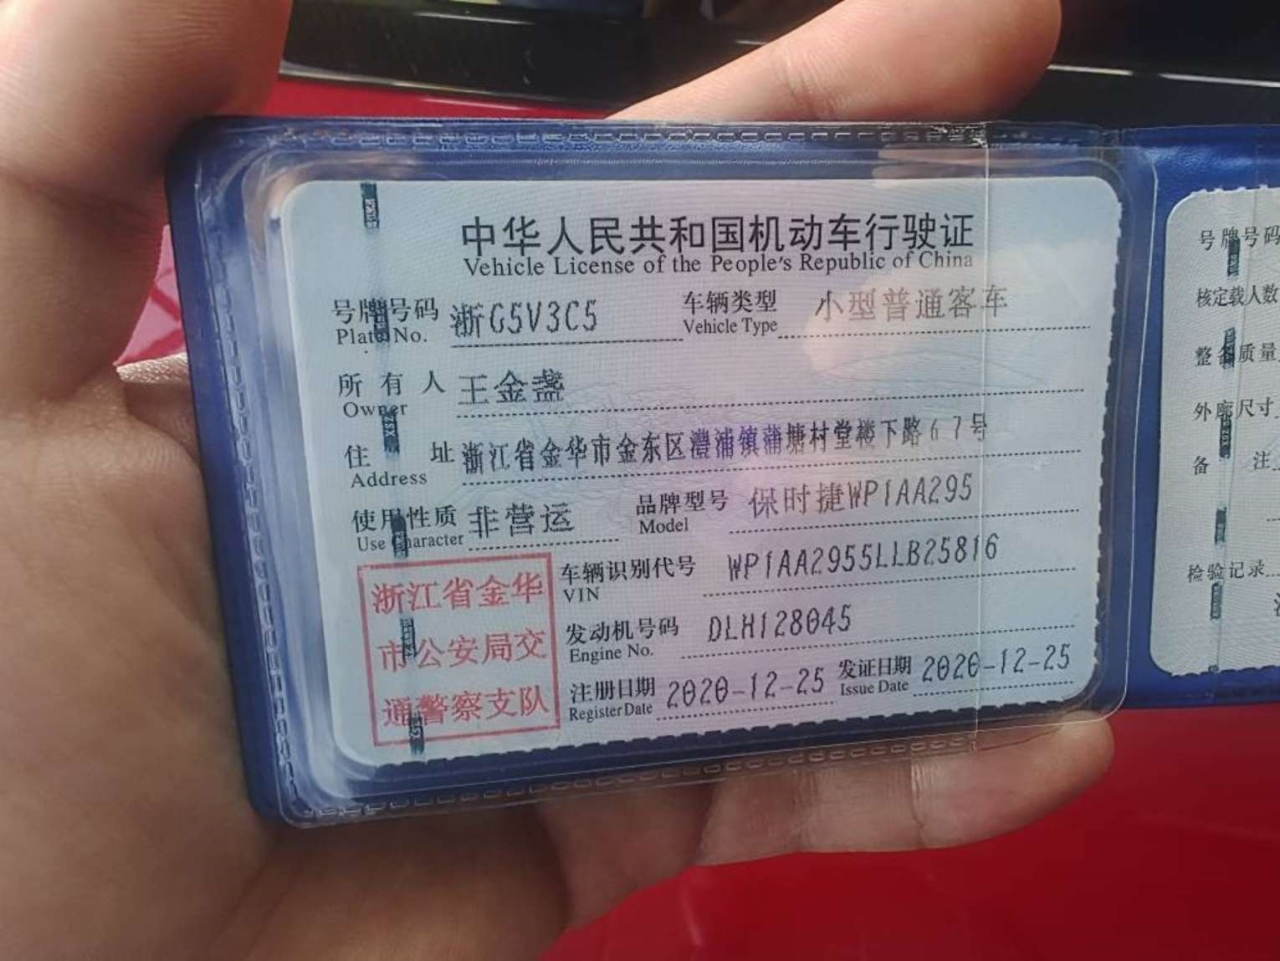 中华人民共和国机动车行驶证
Vehicle License of the People's Republic of China
号牌号码 浙G5V3C5 车辆类型 小型普通客车
Plate No. Vehicle Type
所有人 王金盏
Owner
住址 浙江省金华市金东区澧浦镇蒲塘村堂楼下路67号
Address
使用性质 非营运 品牌型号 保时捷WP1AA295
Use Character Model
浙江省金华
市公安局交
通警察支队
车辆识别代号 WP1AA2955LLB25816
VIN
发动机号码 DLH128045
Engine No.
注册日期 2020-12-25 发证日期 2020-12-25
Register Date Issue Date
号牌号码
核定载人数
整备质量
外廓尺寸
备 注
检验记录